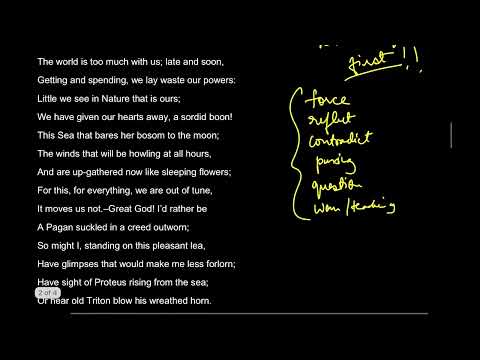 first!!
The world is too much with us; late and soon,
Getting and spending, we lay waste our powers:
Little we see in Nature that is ours;
We have given our hearts away, a sordid boon!
This Sea that bares her bosom to the moon;
The winds that will be howling at all hours,
And are up-gathered now like sleeping flowers;
For this, for everything, we are out of tune,
It moves us not.–Great God! I'd rather be
A Pagan suckled in a creed outworn;
So might I, standing on this pleasant lea,
Have glimpses that would make me less forlorn;
Have sight of Proteus rising from the sea;
Or hear old Triton blow his wreathed horn.
2 of 4
force
reflect
contradict
question
warn/teaching